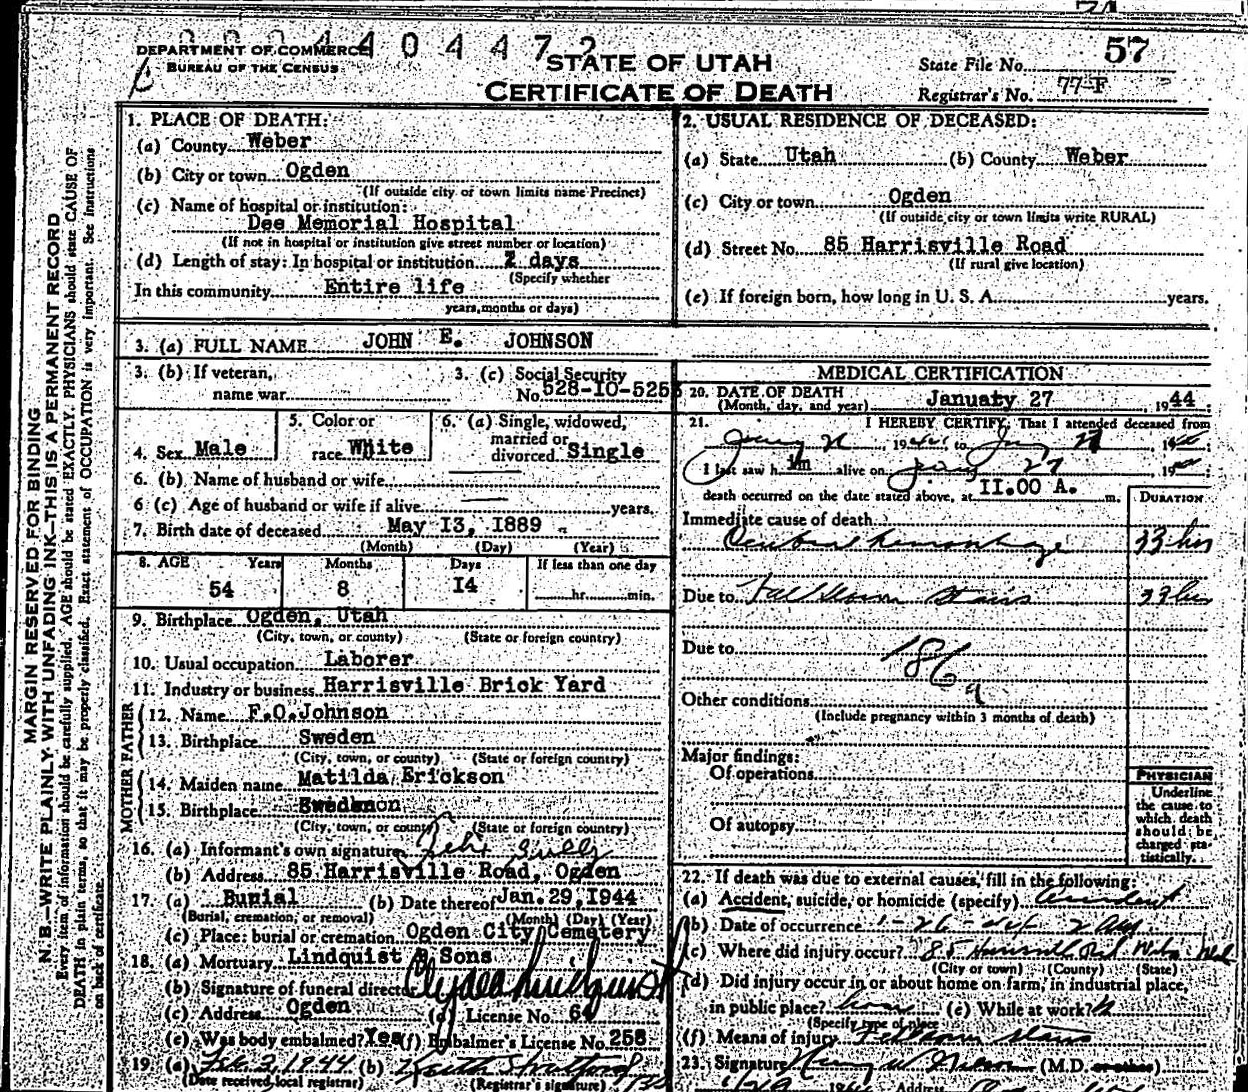 DEPARTMENT OF COMMERCE
BUREAU OF THE CENSUS
STATE OF UTAH
CERTIFICATE OF DEATH
State File No. 57
Registrar's No. 77-F
MARGIN RESERVED FOR BINDING
N. B.—WRITE PLAINLY, WITH UNFADING INK—THIS IS A PERMANENT RECORD
Every item of information should be carefully supplied. AGE should be stated EXACTLY. PHYSICIANS should state CAUSE OF
DEATH in plain terms, so that it may be properly classified. Exact statement of OCCUPATION is very important. See instructions
on back of certificate.
1. PLACE OF DEATH:
(a) County Weber
(b) City or town Ogden
(If outside city or town limits name Precinct)
(c) Name of hospital or institution:
Dee Memorial Hospital
(If not in hospital or institution give street number or location)
(d) Length of stay: In hospital or institution 2 days
(Specify whether
In this community Entire life
years, months or days)
2. USUAL RESIDENCE OF DECEASED:
(a) State Utah (b) County Weber
(c) City or town Ogden
(If outside city or town limits write RURAL)
(d) Street No. 85 Harrisville Road
(If rural give location)
(e) If foreign born, how long in U. S. A. years.
3. (a) FULL NAME JOHN E. JOHNSON
3. (b) If veteran,
name war
3. (c) Social Security
No. 528-10-525
4. Sex Male
5. Color or
race White
6. (a) Single, widowed,
married or
divorced Single
6. (b) Name of husband or wife
6 (c) Age of husband or wife if alive years.
7. Birth date of deceased May 13, 1889
(Month) (Day) (Year)
8. AGE Years Months Days If less than one day
54 8 14 hr. min.
9. Birthplace Ogden, Utah
(City, town, or county) (State or foreign country)
10. Usual occupation Laborer
11. Industry or business Harrisville Brick Yard
FATHER
12. Name F.O.Johnson
13. Birthplace Sweden
(City, town, or county) (State or foreign country)
MOTHER
14. Maiden name Matilda Erickson
15. Birthplace Sweden
(City, town, or county) (State or foreign country)
16. (a) Informant's own signature
(b) Address 85 Harrisville Road, Ogden
17. (a) Burial (b) Date thereof Jan. 29, 1944
(Burial, cremation, or removal) (Month) (Day) (Year)
(c) Place: burial or cremation Ogden City Cemetery
18. (a) Mortuary Lindquist & Sons
(b) Signature of funeral director Clyde Lindquist
(c) Address Ogden (d) License No. 64
(e) Was body embalmed? Yes (f) Embalmer's License No. 258
19. (a) Feb. 3, 1944 (b) Keith Stratford
(Date received local registrar) (Registrar's signature)
MEDICAL CERTIFICATION
20. DATE OF DEATH
(Month, day, and year) January 27 1944
21. I HEREBY CERTIFY, That I attended deceased from
19 to 19
I last saw him alive on 27 19
death occurred on the date stated above, at 11.00 A. m.
DURATION
Immediate cause of death
Cerebral hemorrhage 33 hrs
Due to Fall down Stairs 33 hrs
Due to
186a
Other conditions
(Include pregnancy within 3 months of death)
Major findings:
Of operations
Of autopsy
PHYSICIAN
Underline
the cause to
which death
should be
charged sta-
tistically.
22. If death was due to external causes, fill in the following:
(a) Accident, suicide, or homicide (specify) Accident
(b) Date of occurrence 1-26-44
(c) Where did injury occur? 85
(City or town) (County) (State)
(d) Did injury occur in or about home on farm, in industrial place,
in public place? home (e) While at work?
(Specify type of place)
(f) Means of injury Fell down stairs
23. Signature (M.D. or other)
Address